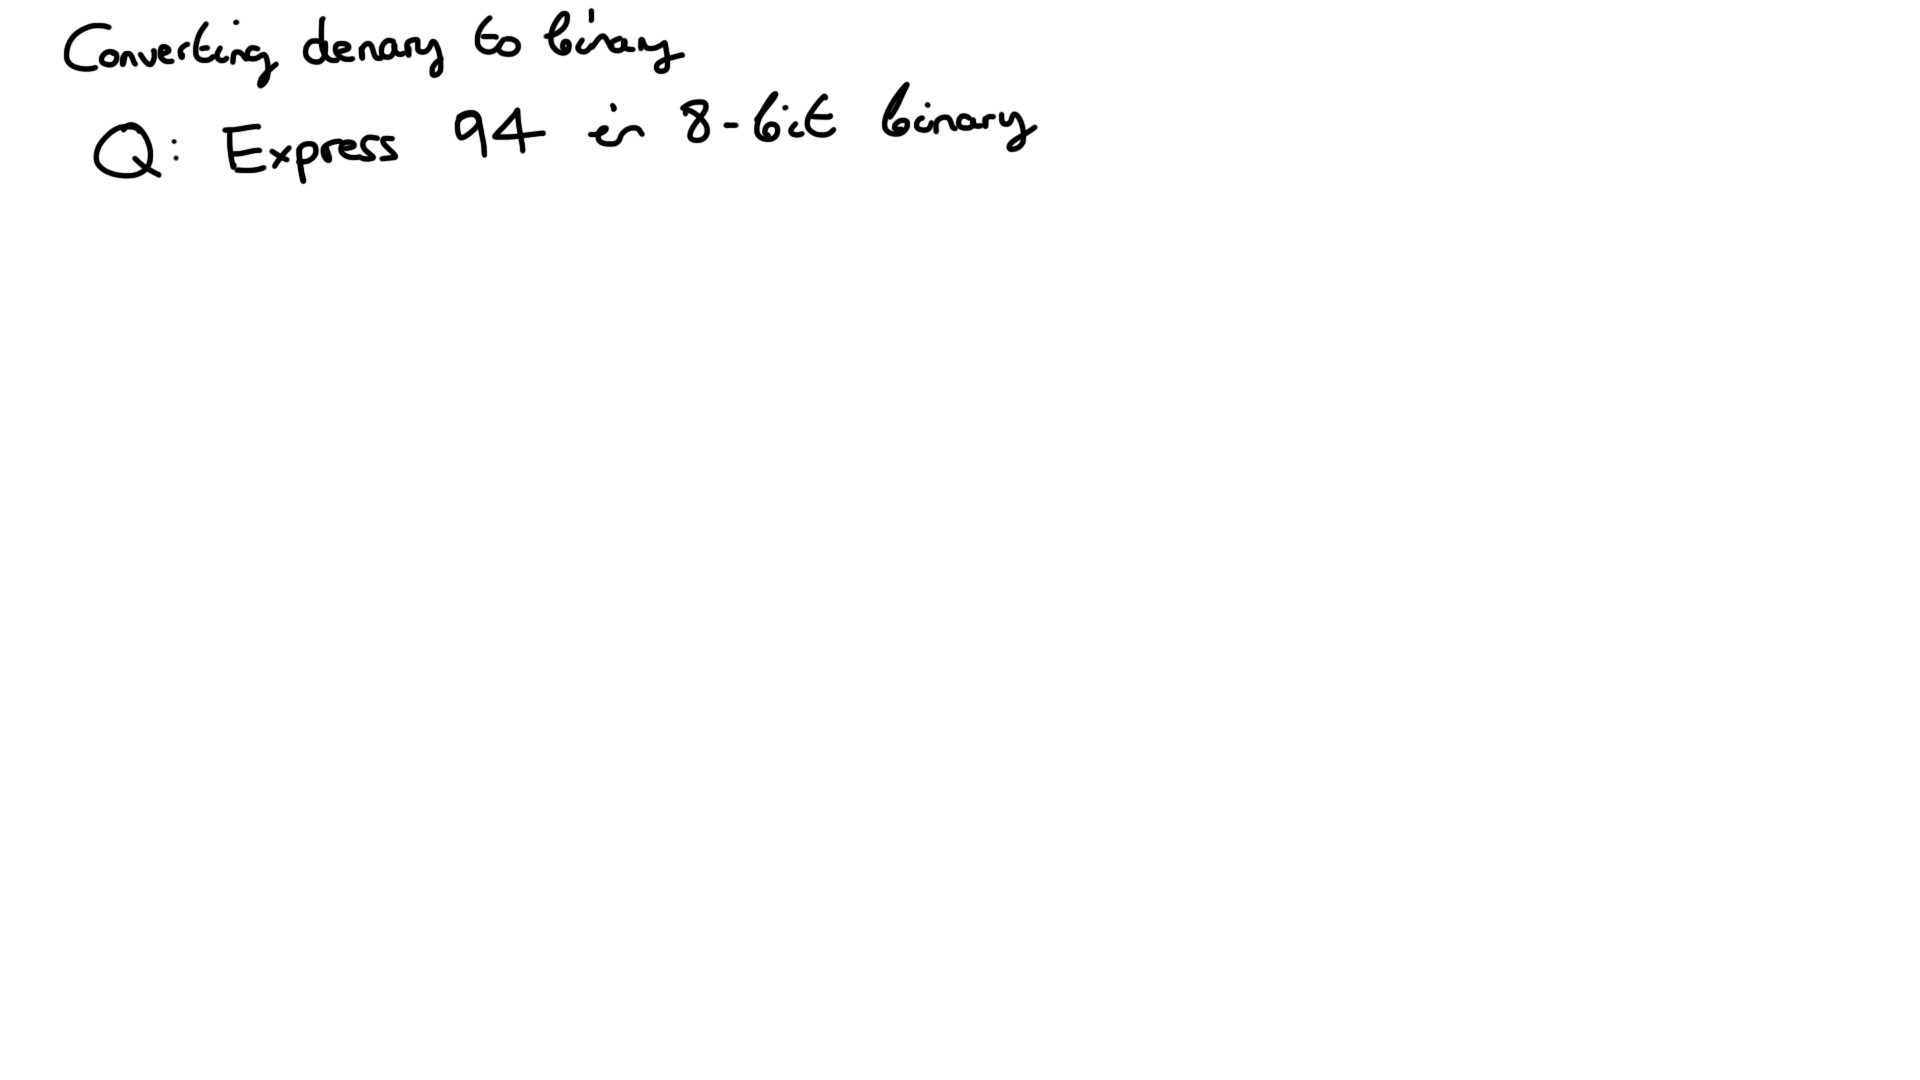 Converting denary to binary
Q: Express 94 in 8-bit binary